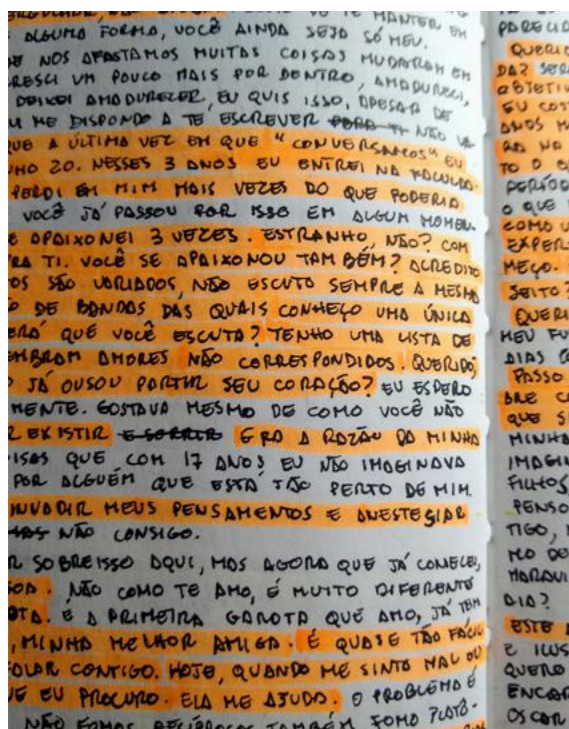 DE TE MANTER EM
ALGUMA FORMA, VOCÊ AINDA SEJA SÓ MEU.
NOS AFASTAMOS MUITAS COISAS MUDARAM EM
CRESCI UM POUCO MAIS POR DENTRO, AMADURECI,
DEIXEI AMADURECER, EU QUIS ISSO, APESAR DE
ME DISPONDO A TE ESCREVER PARA TI NÃO
QUE A ÚLTIMA VEZ EM QUE "CONVERSAMOS" EU
20. NESSES 3 ANOS EU ENTREI NA FACULDA-
PERDI EM MIM MAIS VEZES DO QUE PODERIA
VOCÊ JÁ PASSOU POR ISSO EM ALGUM MOMEN-
APAIXONEI 3 VEZES. ESTRANHO, NÃO? COM
TI. VOCÊ SE APAIXONOU TAMBÉM? ACREDITO
SÃO VARIADOS, NÃO ESCUTO SEMPRE A MESMA
DE BANDAS DAS QUAIS CONHEÇO UMA ÚNICA
QUE VOCÊ ESCUTA? TENHO UMA LISTA DE
AMORES NÃO CORRESPONDIDOS. QUERIDO,
JÁ OUSOU PARTIR SEU CORAÇÃO? EU ESPERO
MENTE. GOSTAVA MESMO DE COMO VOCÊ NÃO
EXISTIR E SORRIR ERA A RAZÃO DA MINHA
QUE COM 17 ANOS EU NÃO IMAGINAVA
POR ALGUÉM QUE ESTÁ TÃO PERTO DE MIM.
INVADIR MEUS PENSAMENTOS E ANESTESIAR
NÃO CONSIGO.
SOBRE ISSO AQUI, MAS AGORA QUE JÁ COMECEI,
NÃO COMO TE AMO, É MUITO DIFERENTE
É A PRIMEIRA GAROTA QUE AMO, JÁ TEM
, MINHA MELHOR AMIGA. É QUASE TÃO FÁCIL
FALAR CONTIGO. HOJE, QUANDO ME SINTO MAL OU
EU PROCURO. ELA ME AJUDA. O PROBLEMA É
NÃO FOMOS RECÍPROCOS TAMBÉM. FOMO
PARECIA
QUERIDO
DA?
OBJETIV
EU
ANOS
NO
TO O
PERÍOD
O QUE
COMO
EXPER
MEÇO.
JEITO?
QUERI
MEU
DIAS
PASSO
QUE
MINHA
IMAGIN
FILHOS
PENSO
TIGO,
MO DE
MARAVI
DIA?
ESTE
E ILUS
QUERO
ENCAR
OSCAR